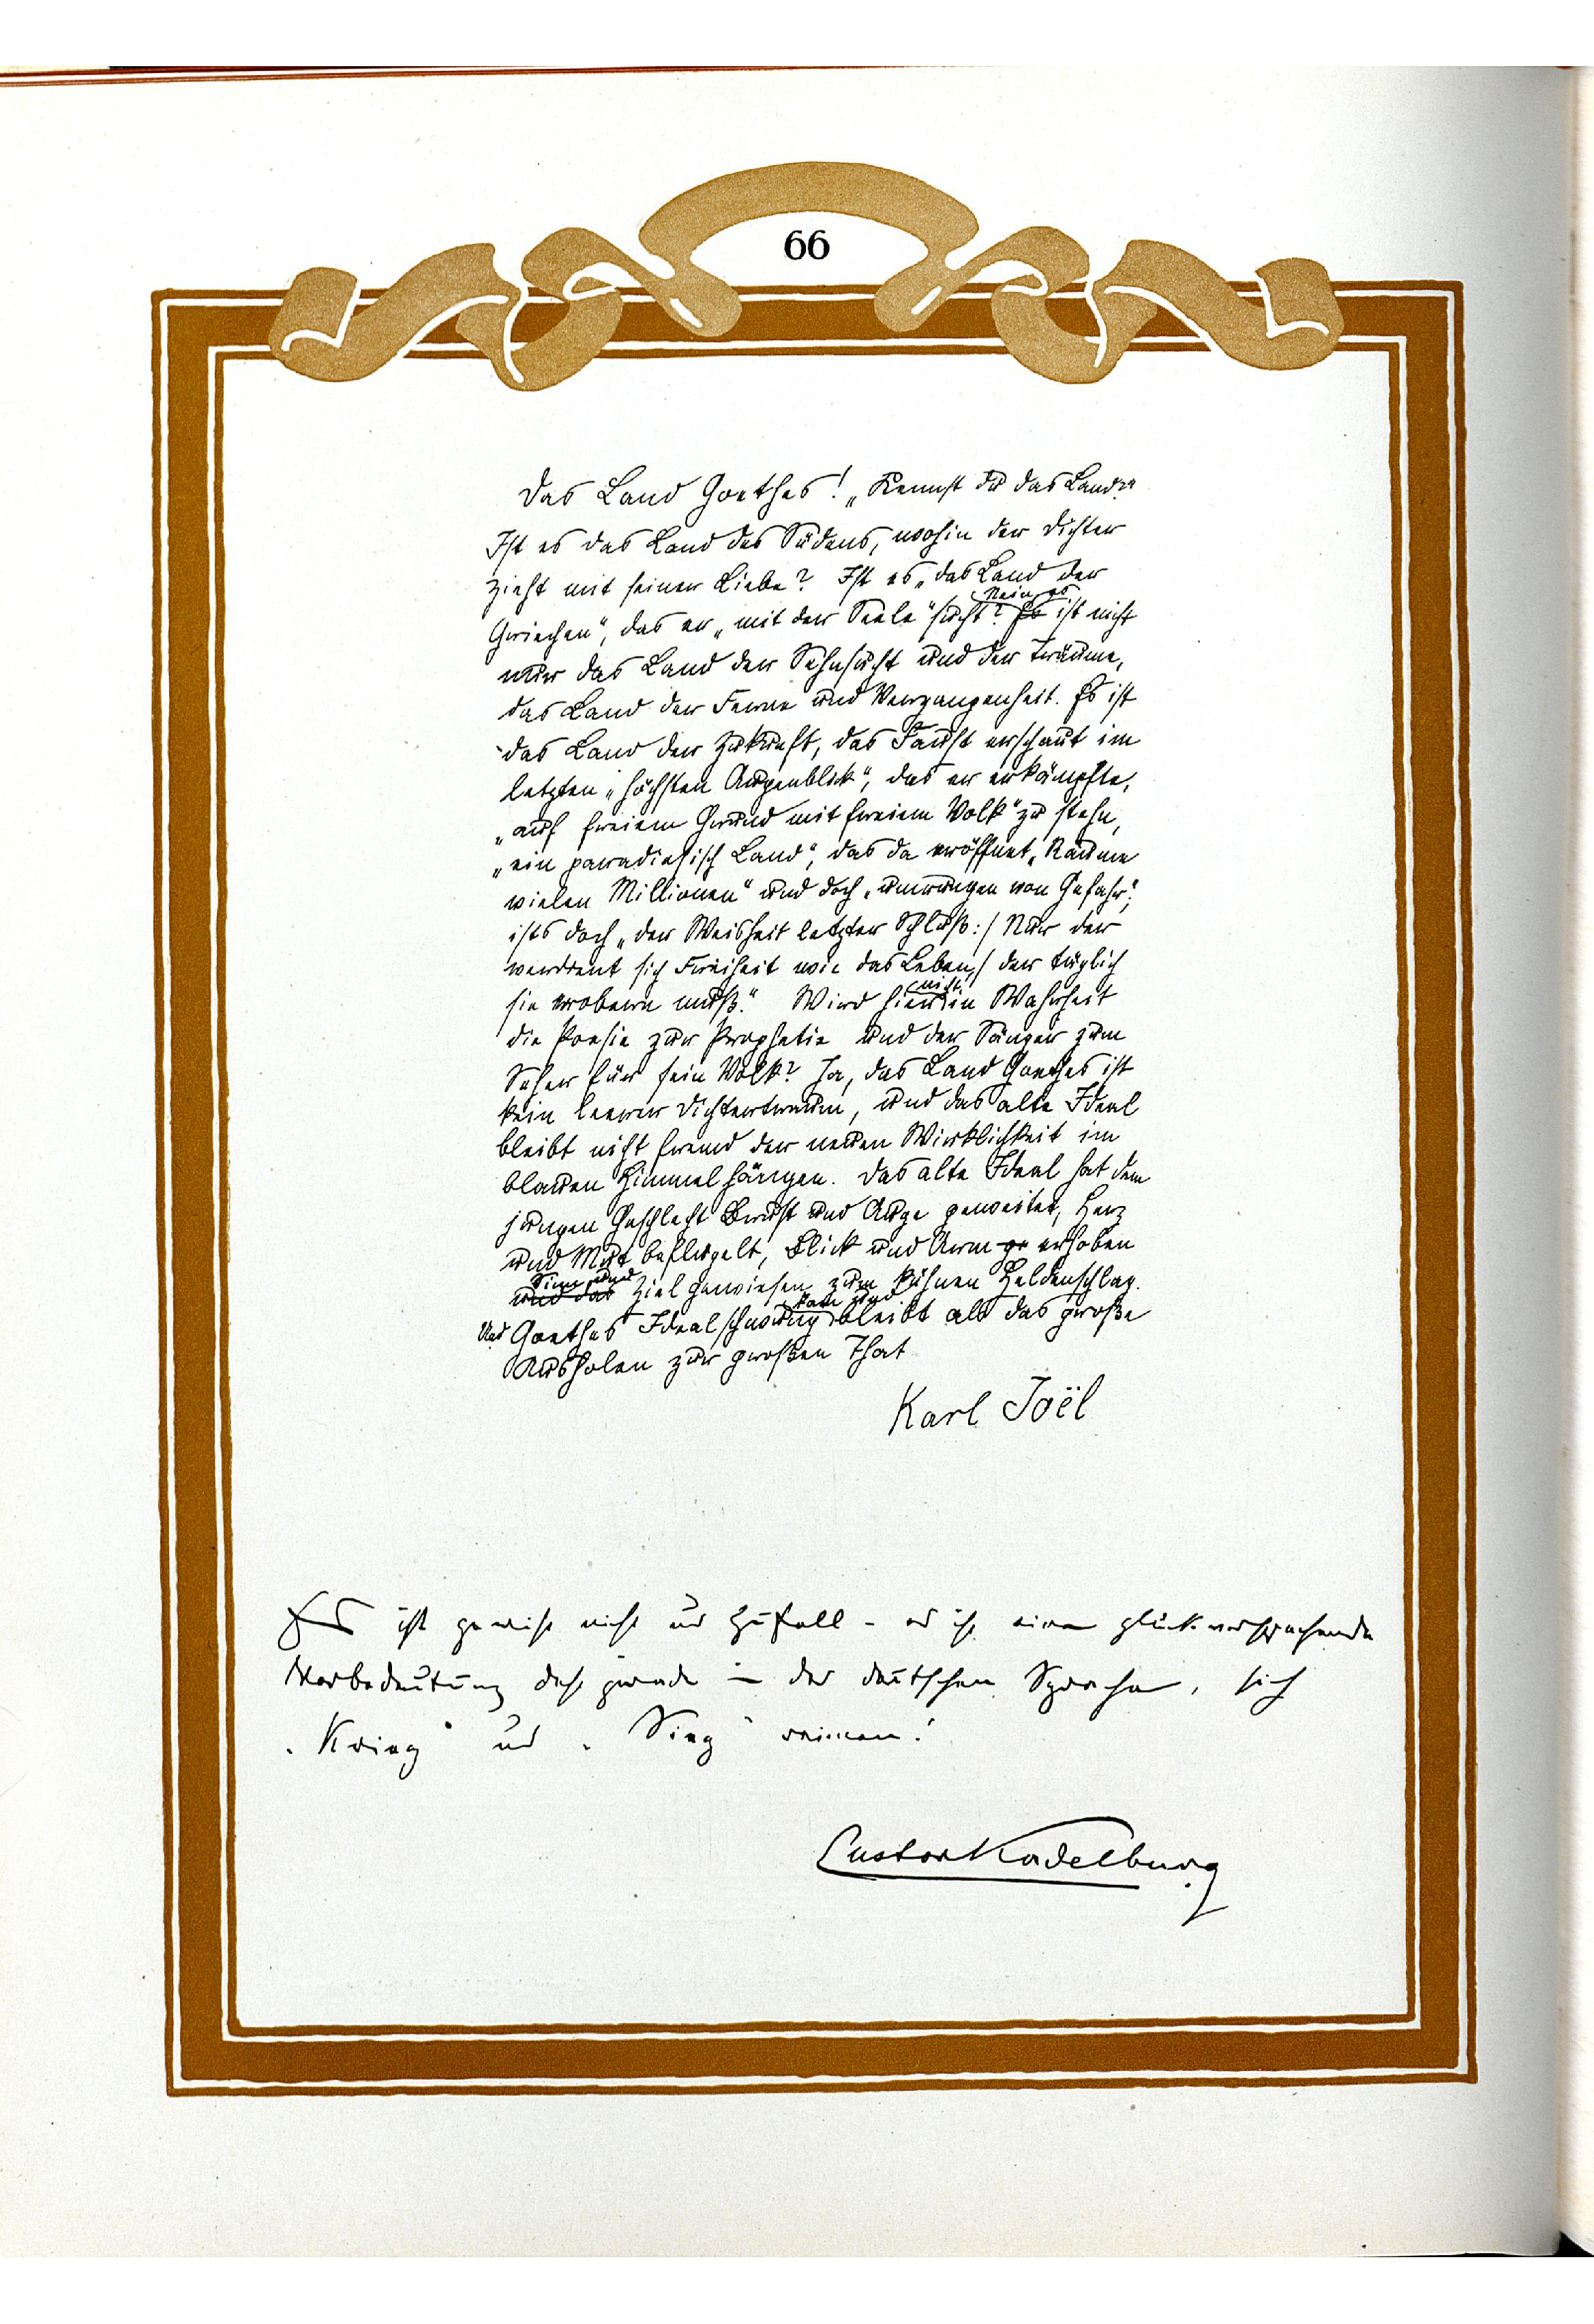 66
Das Land Goethes! „Kennst du das Land?“
Ist es das Land des Südens, wohin der Dichter
zieht mit seiner Liebe? Ist es „das Land der
Griechen“, das er „mit der Seele“ sucht? Nein, es ist nicht
nur das Land der Sehnsucht und der Träume,
das Land der Ferne und Vergangenheit. Es ist
das Land der Zukunft, das Faust erschaut im
letzten „höchsten Augenblick“, das er erkämpfte,
„auf freiem Grund mit freiem Volk“ zu stehn,
„ein paradiesisch Land“, das da eröffnet „Räume
vielen Millionen“ und doch „umrungen von Gefahr“;
ists doch „der Weisheit letzter Schluß:/ Nur der
verdient sich Freiheit wie das Leben,/ der täglich
sie erobern muß.“ Wird hier nicht in Wahrheit
die Poesie zur Prophetie und der Sänger zum
Seher für sein Volk? Ja, das Land Goethes ist
kein leerer Dichtertraum, und das alte Ideal
bleibt nicht fremd der neuen Wirklichkeit im
blauen Himmel hängen. Das alte Ideal hat dem
jungen Geschlecht Brust und Auge geweitet, Herz
und Mut beflügelt, Blick und Arm erhoben
Sinn und Ziel gewiesen zum kühnen Heldenschlag.
Und Goethes Idealschwung und bleibt als das große
Ausholen zur großen That
Karl Joël
Es ist gewiss nicht nur Zufall – es ist eine glückversprechende
Vorbedeutung dass gerade in der deutschen Sprache, sich
„Krieg“ und „Sieg“ reimen!
Gustav Kadelburg